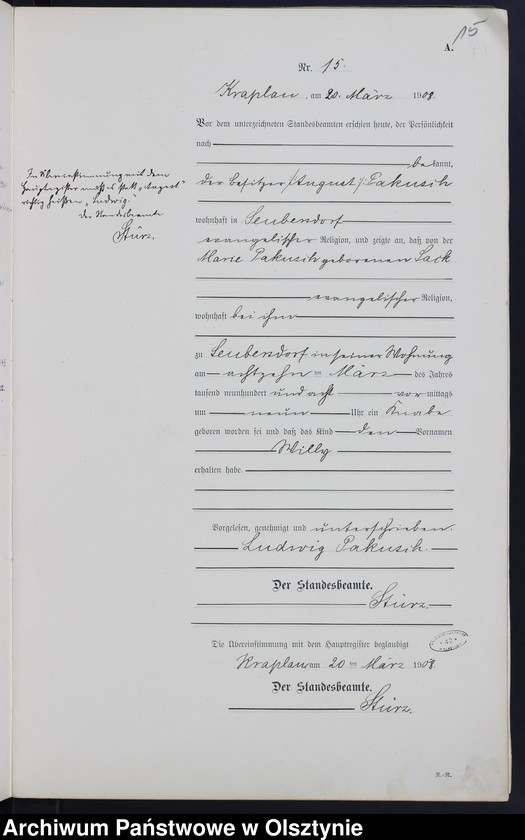 15
A.
Nr. 15.
Kraplau, am 20. März 1908.
Vor dem unterzeichneten Standesbeamten erschien heute, der Persönlichkeit
nach
bekannt,
der Besitzer /August/ Pakusch
wohnhaft in Seubersdorf
evangelischer Religion, und zeigte an, daß von der
Marie Pakusch geborenen Sack
evangelischer Religion,
wohnhaft bei ihm
zu Seubersdorf in seiner Wohnung
am achtzehn ten März des Jahres
tausend neunhundert und acht vormittags
um neun Uhr ein Knabe
geboren worden sei und daß das Kind den Vornamen
Willy
erhalten habe.
Vorgelesen, genehmigt und unterschrieben.
Ludwig Pakusch.
Der Standesbeamte.
Stürz.
Die Übereinstimmung mit dem Hauptregister beglaubigt
Kraplau, am 20 ten März 1908.
Der Standesbeamte.
Stürz.
In Übereinstimmung mit dem
Hauptregister muß es statt „August“
richtig heißen „Ludwig.“
Der Standesbeamte
Stürz.
A.-R.
Archiwum Państwowe w Olsztynie